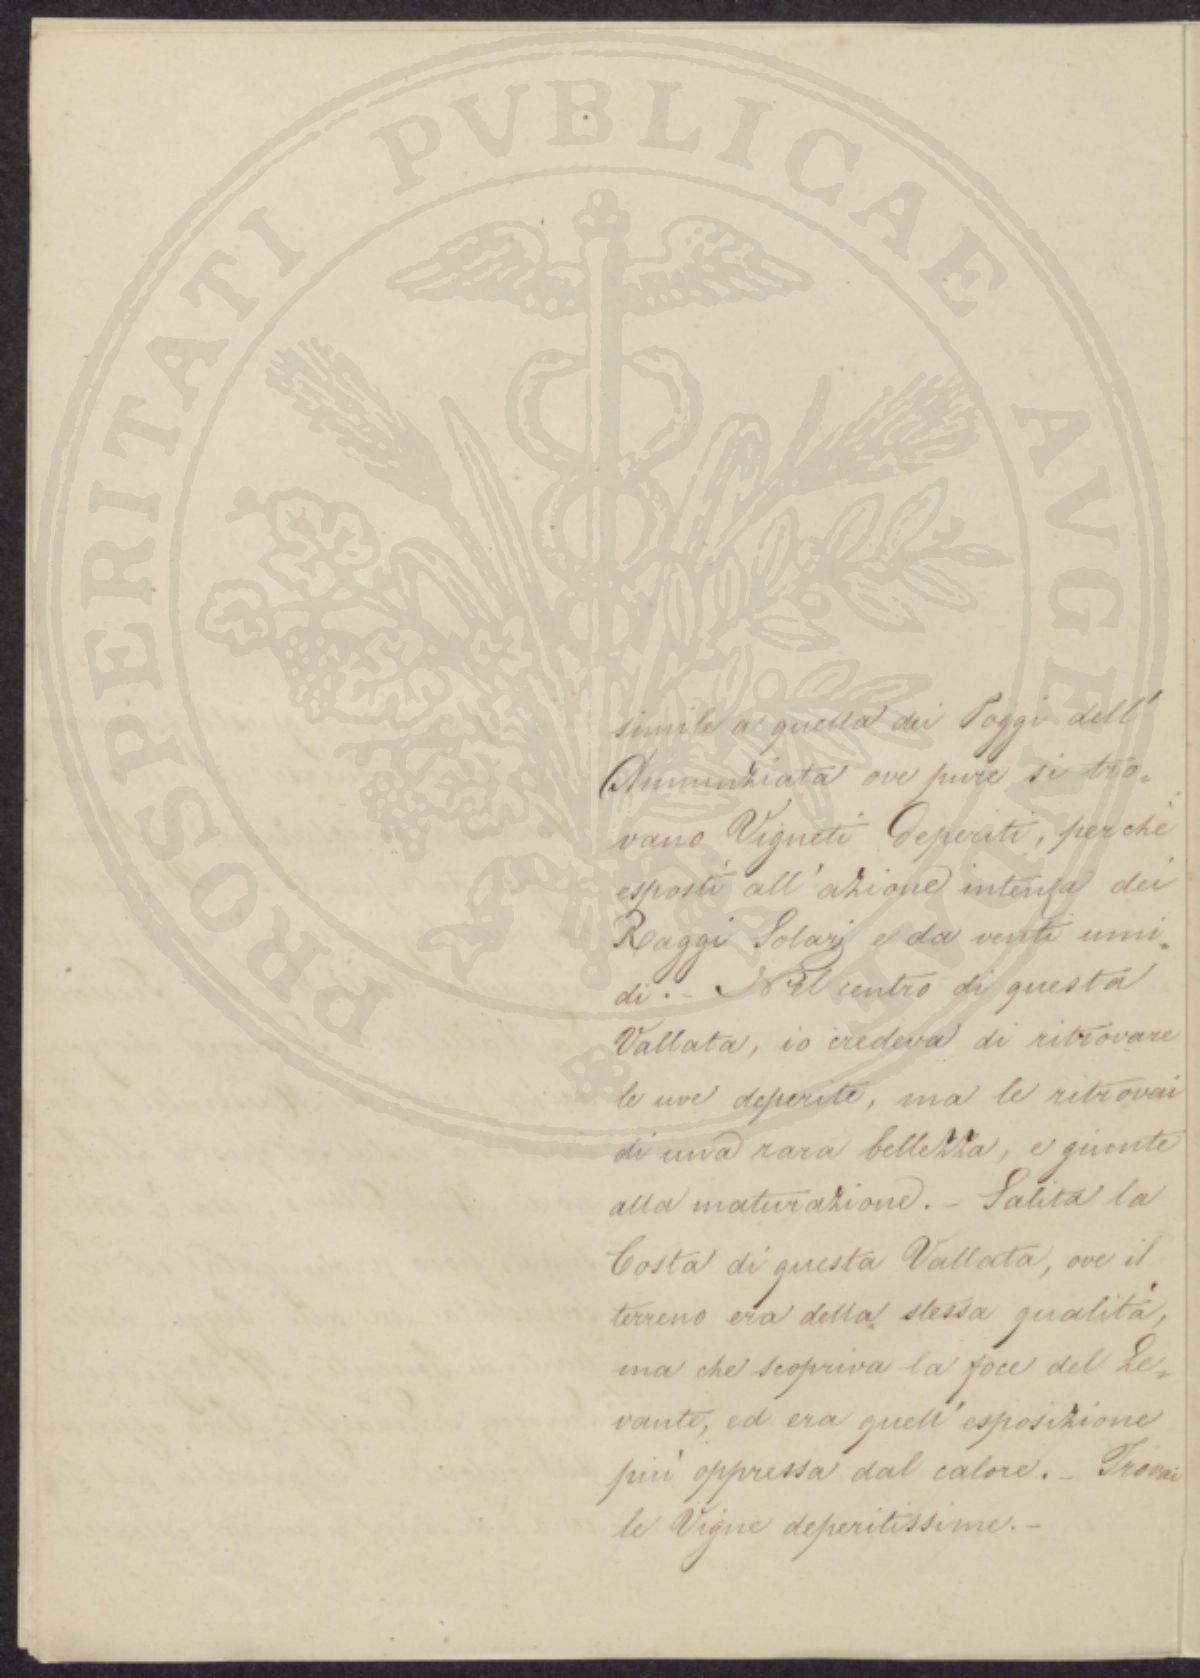 PROSPERITATI PVBLICAE AVGENDAE
simile a quella dei Poggi dell'
Annunziata ove pure si tro=
vano Vigneti deperiti, perchè
esposti all'azione intensa dei
Raggi Solari e da venti umi=
di. - Nel centro di questa
Vallata, io credeva di ritrovare
le uve deperite, ma le ritrovai
di una rara bellezza, e giunte
alla maturazione. - Salita la
Costa di questa Vallata, ove il
terreno era della stessa qualità,
ma che scopriva la foce del Le=
vante, ed era quell'esposizione
più oppressa dal calore. - Trovai
le Vigne deperitissime. -